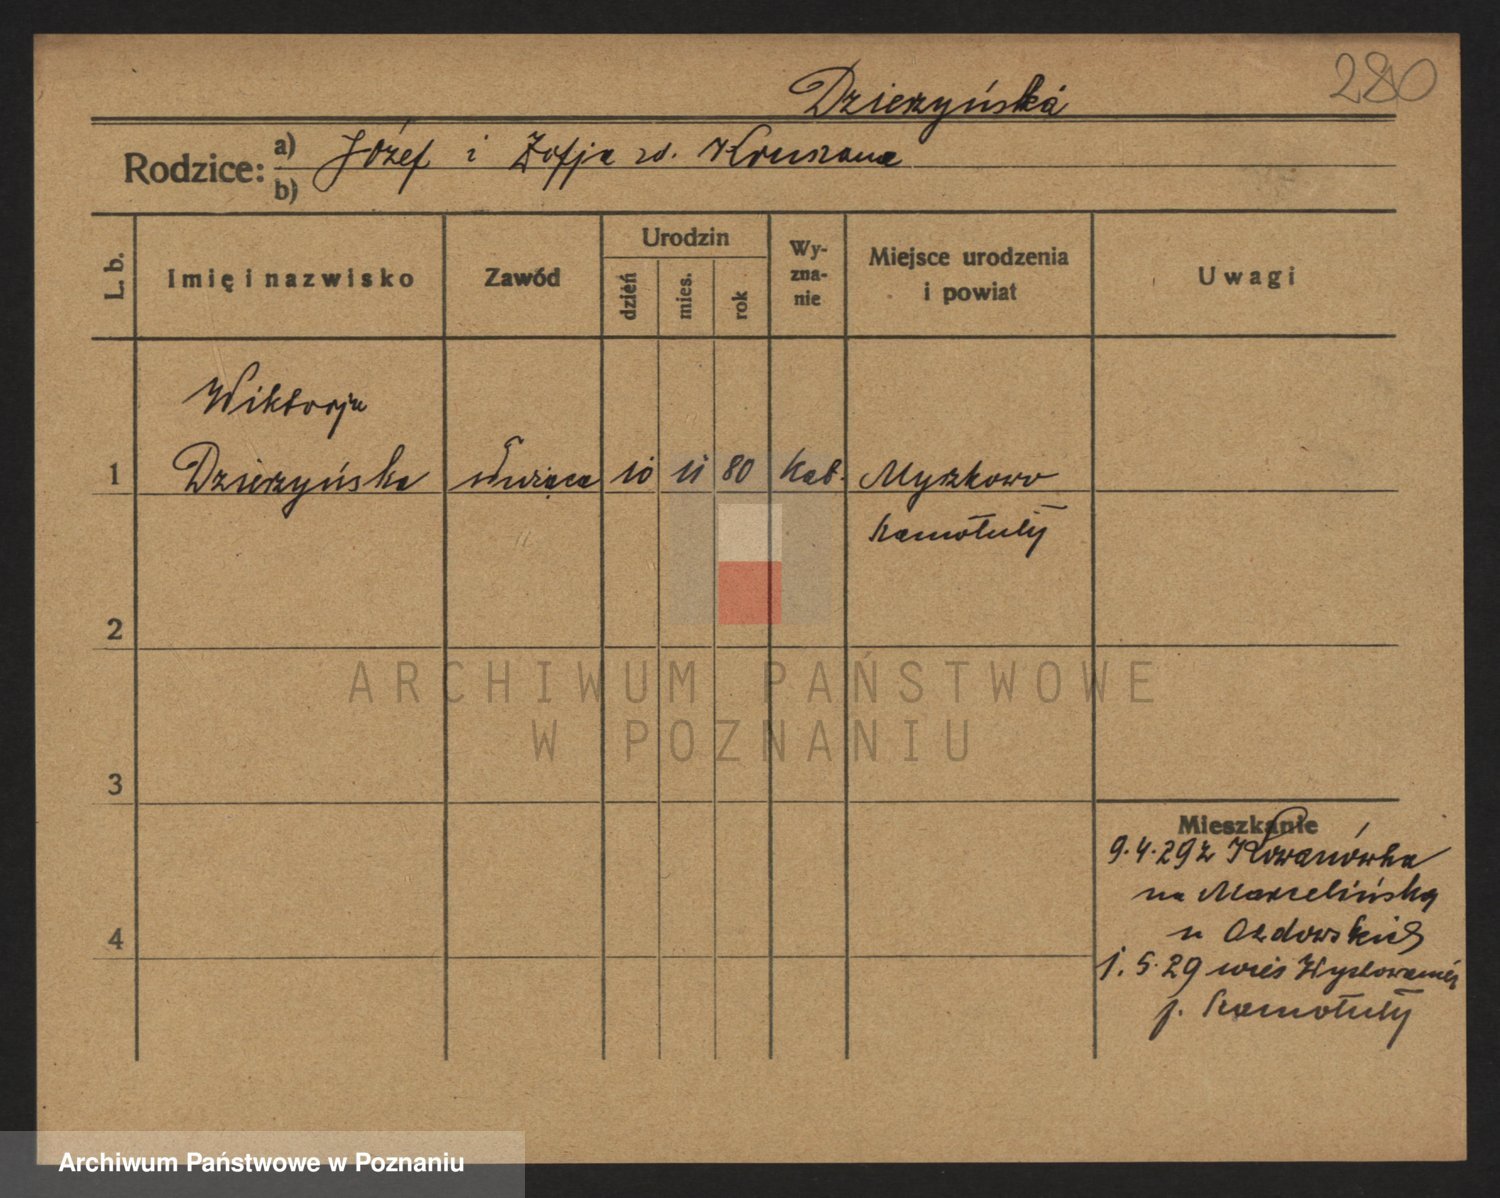 280
Dzierzyńska
Rodzice: a) Józef i Zofja z d. Kruszona
b)
L. b. Imię i nazwisko Zawód Urodzin dzień mies. rok Wyzna-nie Miejsce urodzenia i powiat Uwagi
Wiktorja
1 Dzierzyńska służąca 10 11 80 kat. Myszkowo
Szamotuły
2
3
4
Mieszkanie
9.4.29 z Kowanówka
na Marcelińską
u Ozdowskich
1.5.29 wieś
p. Szamotuły
ARCHIWUM PAŃSTWOWE
W POZNANIU
Archiwum Państwowe w Poznaniu